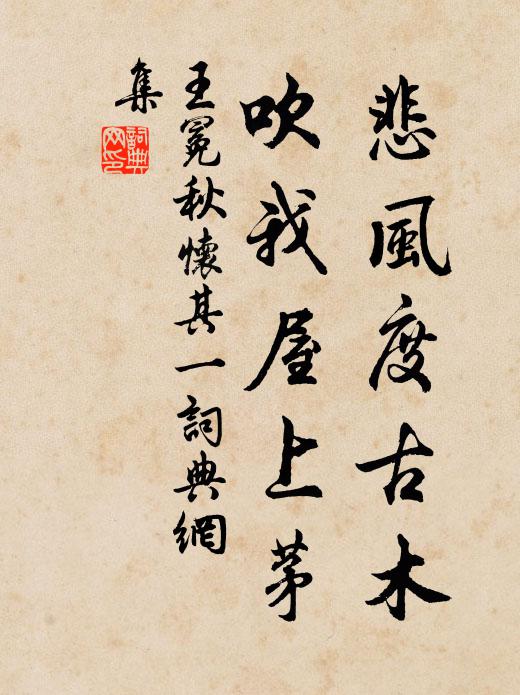 悲風度古木
吹我屋上茅
王冕秋懷其一詞典網
集
詞典
网印